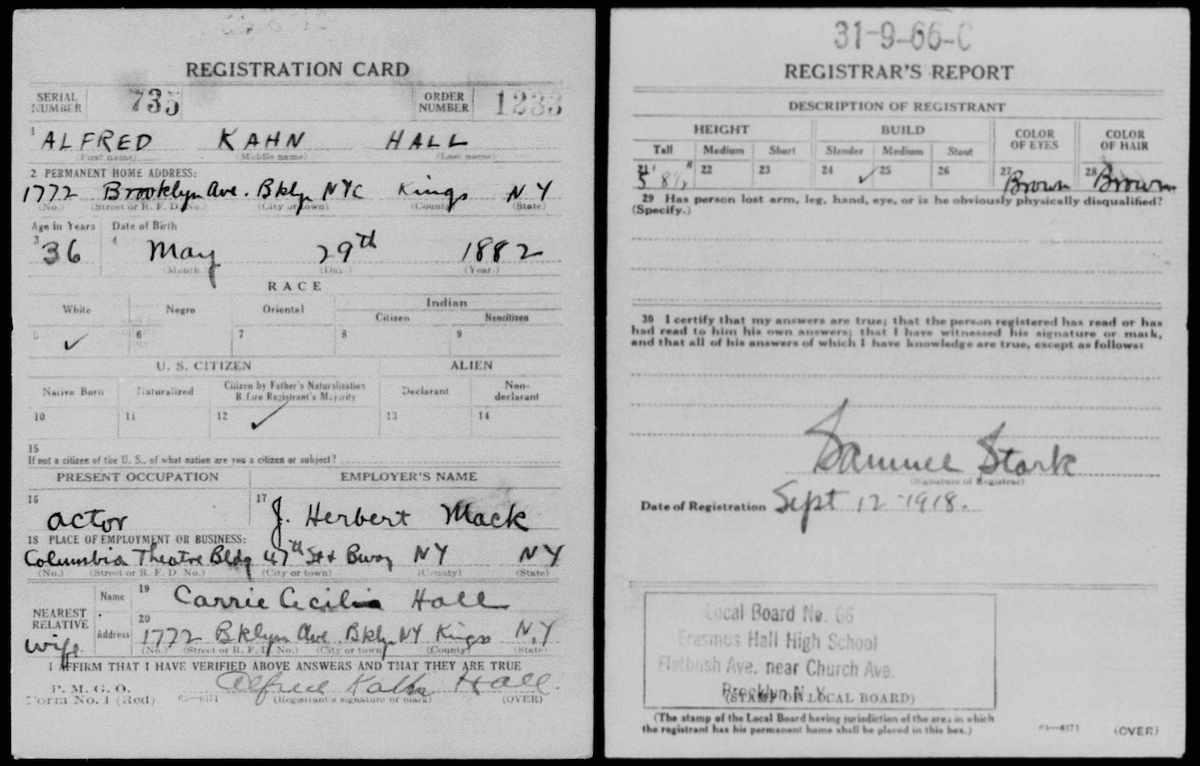 REGISTRATION CARD
SERIAL NUMBER 735 ORDER NUMBER 1233
1 ALFRED KAHN HALL
(First name) (Middle name) (Last name)
2 PERMANENT HOME ADDRESS:
1772 Brooklyn Ave. Bklyn NYC Kings NY
(No.) (Street or R. F. D. No.) (City or town) (County) (State)
Age in Years Date of Birth
3 36 4 May 29th 1882
(Month.) (Day.) (Year.)
RACE
White Negro Oriental Indian
Citizen Noncitizen
5 ✓ 6 7 8 9
U. S. CITIZEN ALIEN
Native Born Naturalized Citizen by Father's Naturalization Before Registrant's Majority Declarant Non-declarant
10 11 12 ✓ 13 14
15
If not a citizen of the U. S., of what nation are you a citizen or subject?
PRESENT OCCUPATION EMPLOYER'S NAME
16 actor 17 J. Herbert Mack
18 PLACE OF EMPLOYMENT OR BUSINESS:
Columbia Theatre Bldg 47th St & Bway NY NY
(No.) (Street or R. F. D. No.) (City or town) (County) (State)
NEAREST RELATIVE wife
Name 19 Carrie Cecilia Hall
Address 20 1772 Bklyn Ave. Bklyn NY Kings N.Y.
(No.) (Street or R. F. D. No.) (City or town) (County) (State)
I AFFIRM THAT I HAVE VERIFIED ABOVE ANSWERS AND THAT THEY ARE TRUE
P. M. G. O.
Form No. 1 (Red) Alfred Kahn Hall
(Registrant's signature or mark) (OVER)
31-9-66-C
REGISTRAR'S REPORT
DESCRIPTION OF REGISTRANT
HEIGHT BUILD COLOR OF EYES COLOR OF HAIR
Tall Medium Short Slender Medium Stout
21 22 23 24 ✓ 25 26 27 Brown 28 Brown
29 Has person lost arm, leg, hand, eye, or is he obviously physically disqualified?
(Specify.)
30 I certify that my answers are true; that the person registered has read or has
had read to him his own answers; that I have witnessed his signature or mark,
and that all of his answers of which I have knowledge are true, except as follows:
Samuel Stark
(Signature of Registrar)
Date of Registration Sept 12-1918.
Local Board No. 66
Erasmus Hall High School
Flatbush Ave. near Church Ave.
Brooklyn N. Y.
(STAMP OF LOCAL BOARD)
(The stamp of the Local Board having jurisdiction of the area in which
the registrant has his permanent home shall be placed in this box.)
(OVER)